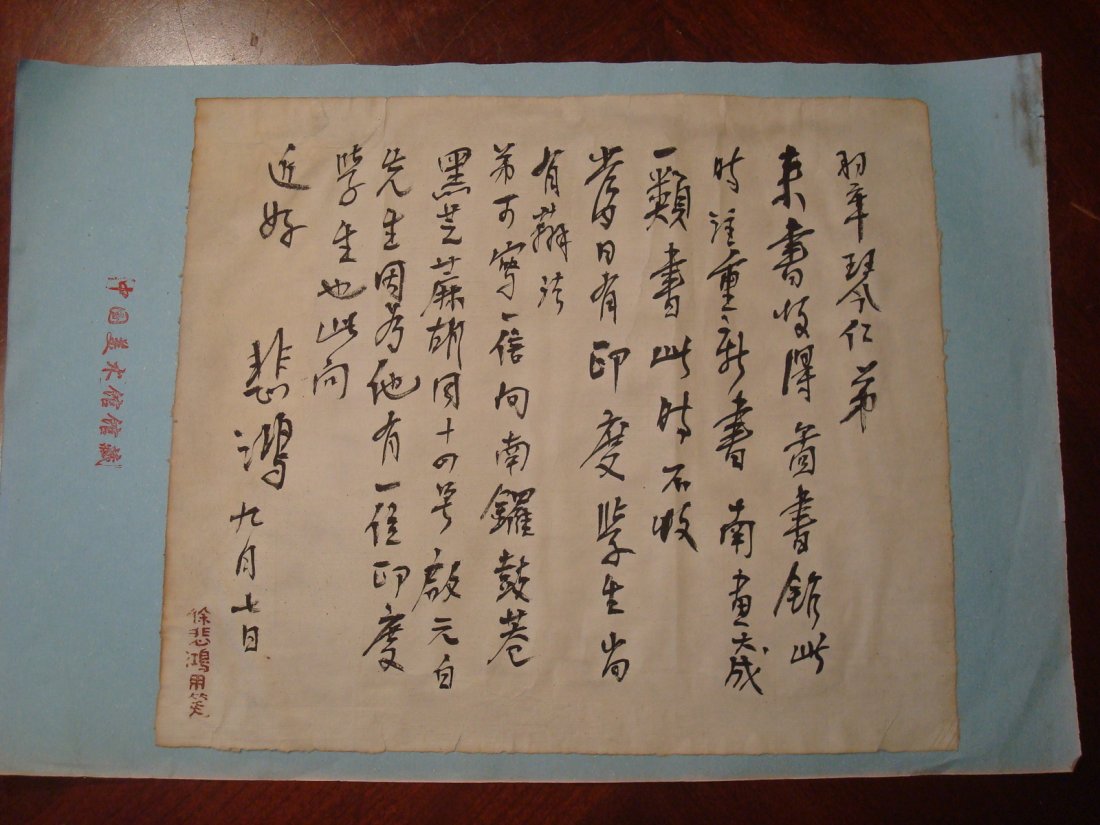 羽軍琴仁弟
来書收得啚書館此
時注重新書南畫大成
一類書此時不收
當日有印度學生尚
有辦法
弟可寫一信向南鑼鼓巷
黑芝蔴胡同十四号啟元白
先生因为他有一位印度
學生也此问
近好
悲鴻九月七日
徐悲鴻用箋
中國美术館館藏